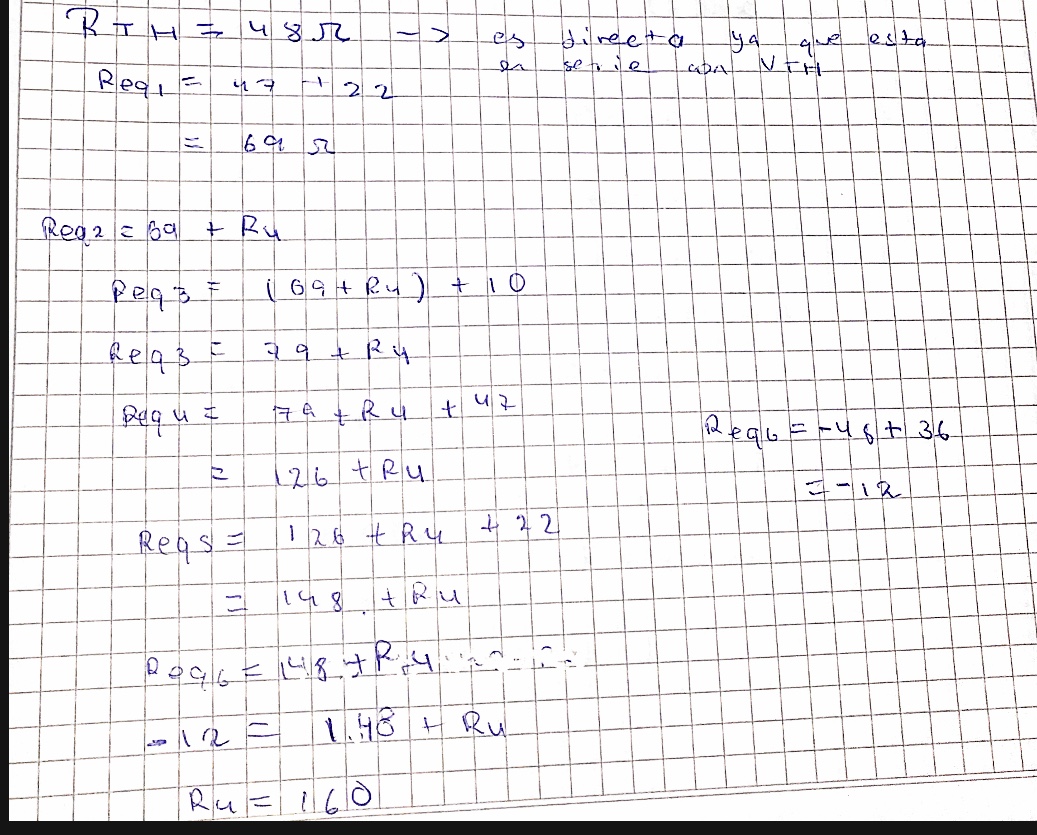 RTH = 48Ω --> es directa ya que esta
en serie con VTH
Req1 = 47 + 22
= 69 Ω
Req2 = 69 + R4
Req3 = (69 + R4) + 10
Req3 = 79 + R4
Req4 = 79 + R4 + 47
= 126 + R4
Req5 = 126 + R4 + 22
= 148 + R4
Req6 = 148 + R4
-12 = 148 + R4
R4 = 160
Req6 = -48 + 36
= -12